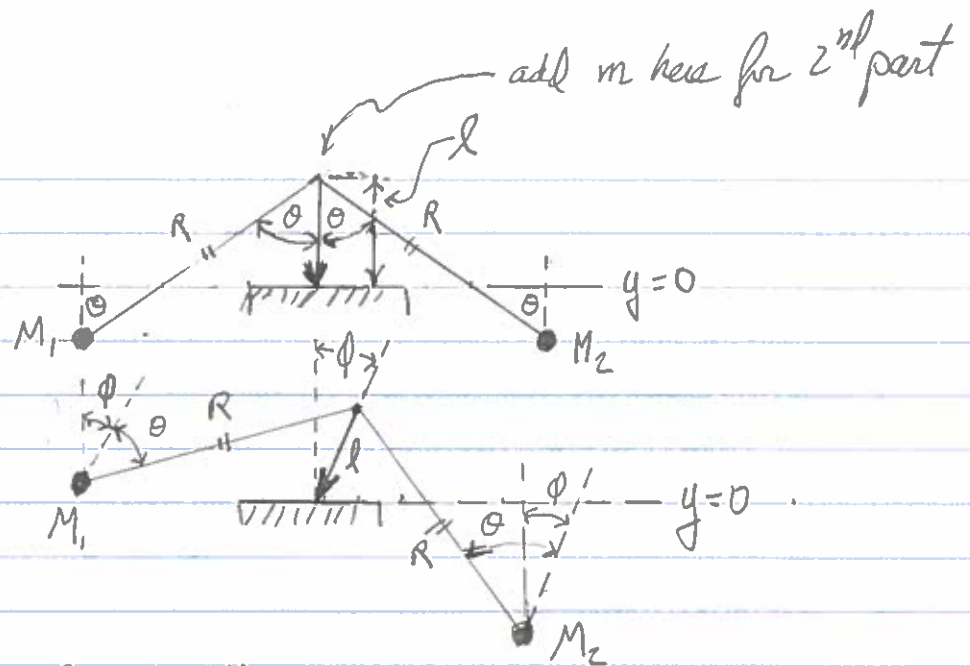 add m here for 2nd part
l
R θ θ R
θ θ y=0
M1 M2
φ φ
θ R
l
M1 φ y=0
R θ
M2